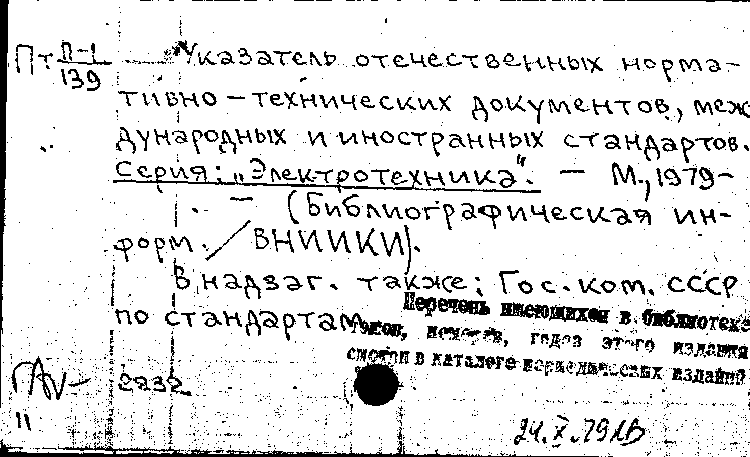 Пт П-1/139 Указатель отечественных норма-
тивно-технических документов, меж
дународных и иностранных стандартов.
Серия: „Электротехника". — М., 1979-
— (Библиографическая ин-
форм. / ВНИИКИ).
В надзаг. также: Гос. ком. СССР
по стандартам.
Перечень имеющихся в библиотеке
томов, номеров, годов этого издания
смотри в каталоге периодических изданий
2232
11
24.X.79